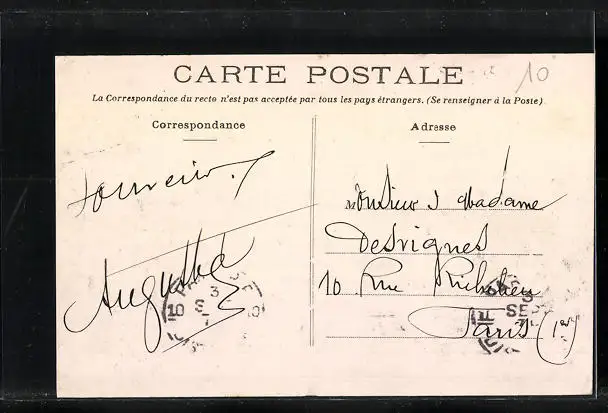 CARTE POSTALE
10
La Correspondance du recto n'est pas acceptée par tous les pays étrangers. (Se renseigner à la Poste).
Correspondance
Souvenir
Augusta
Adresse
Monsieur & Madame
Desvignes
10 Rue Richelieu
Paris (1er)
10 S
3
7
11
SEPT